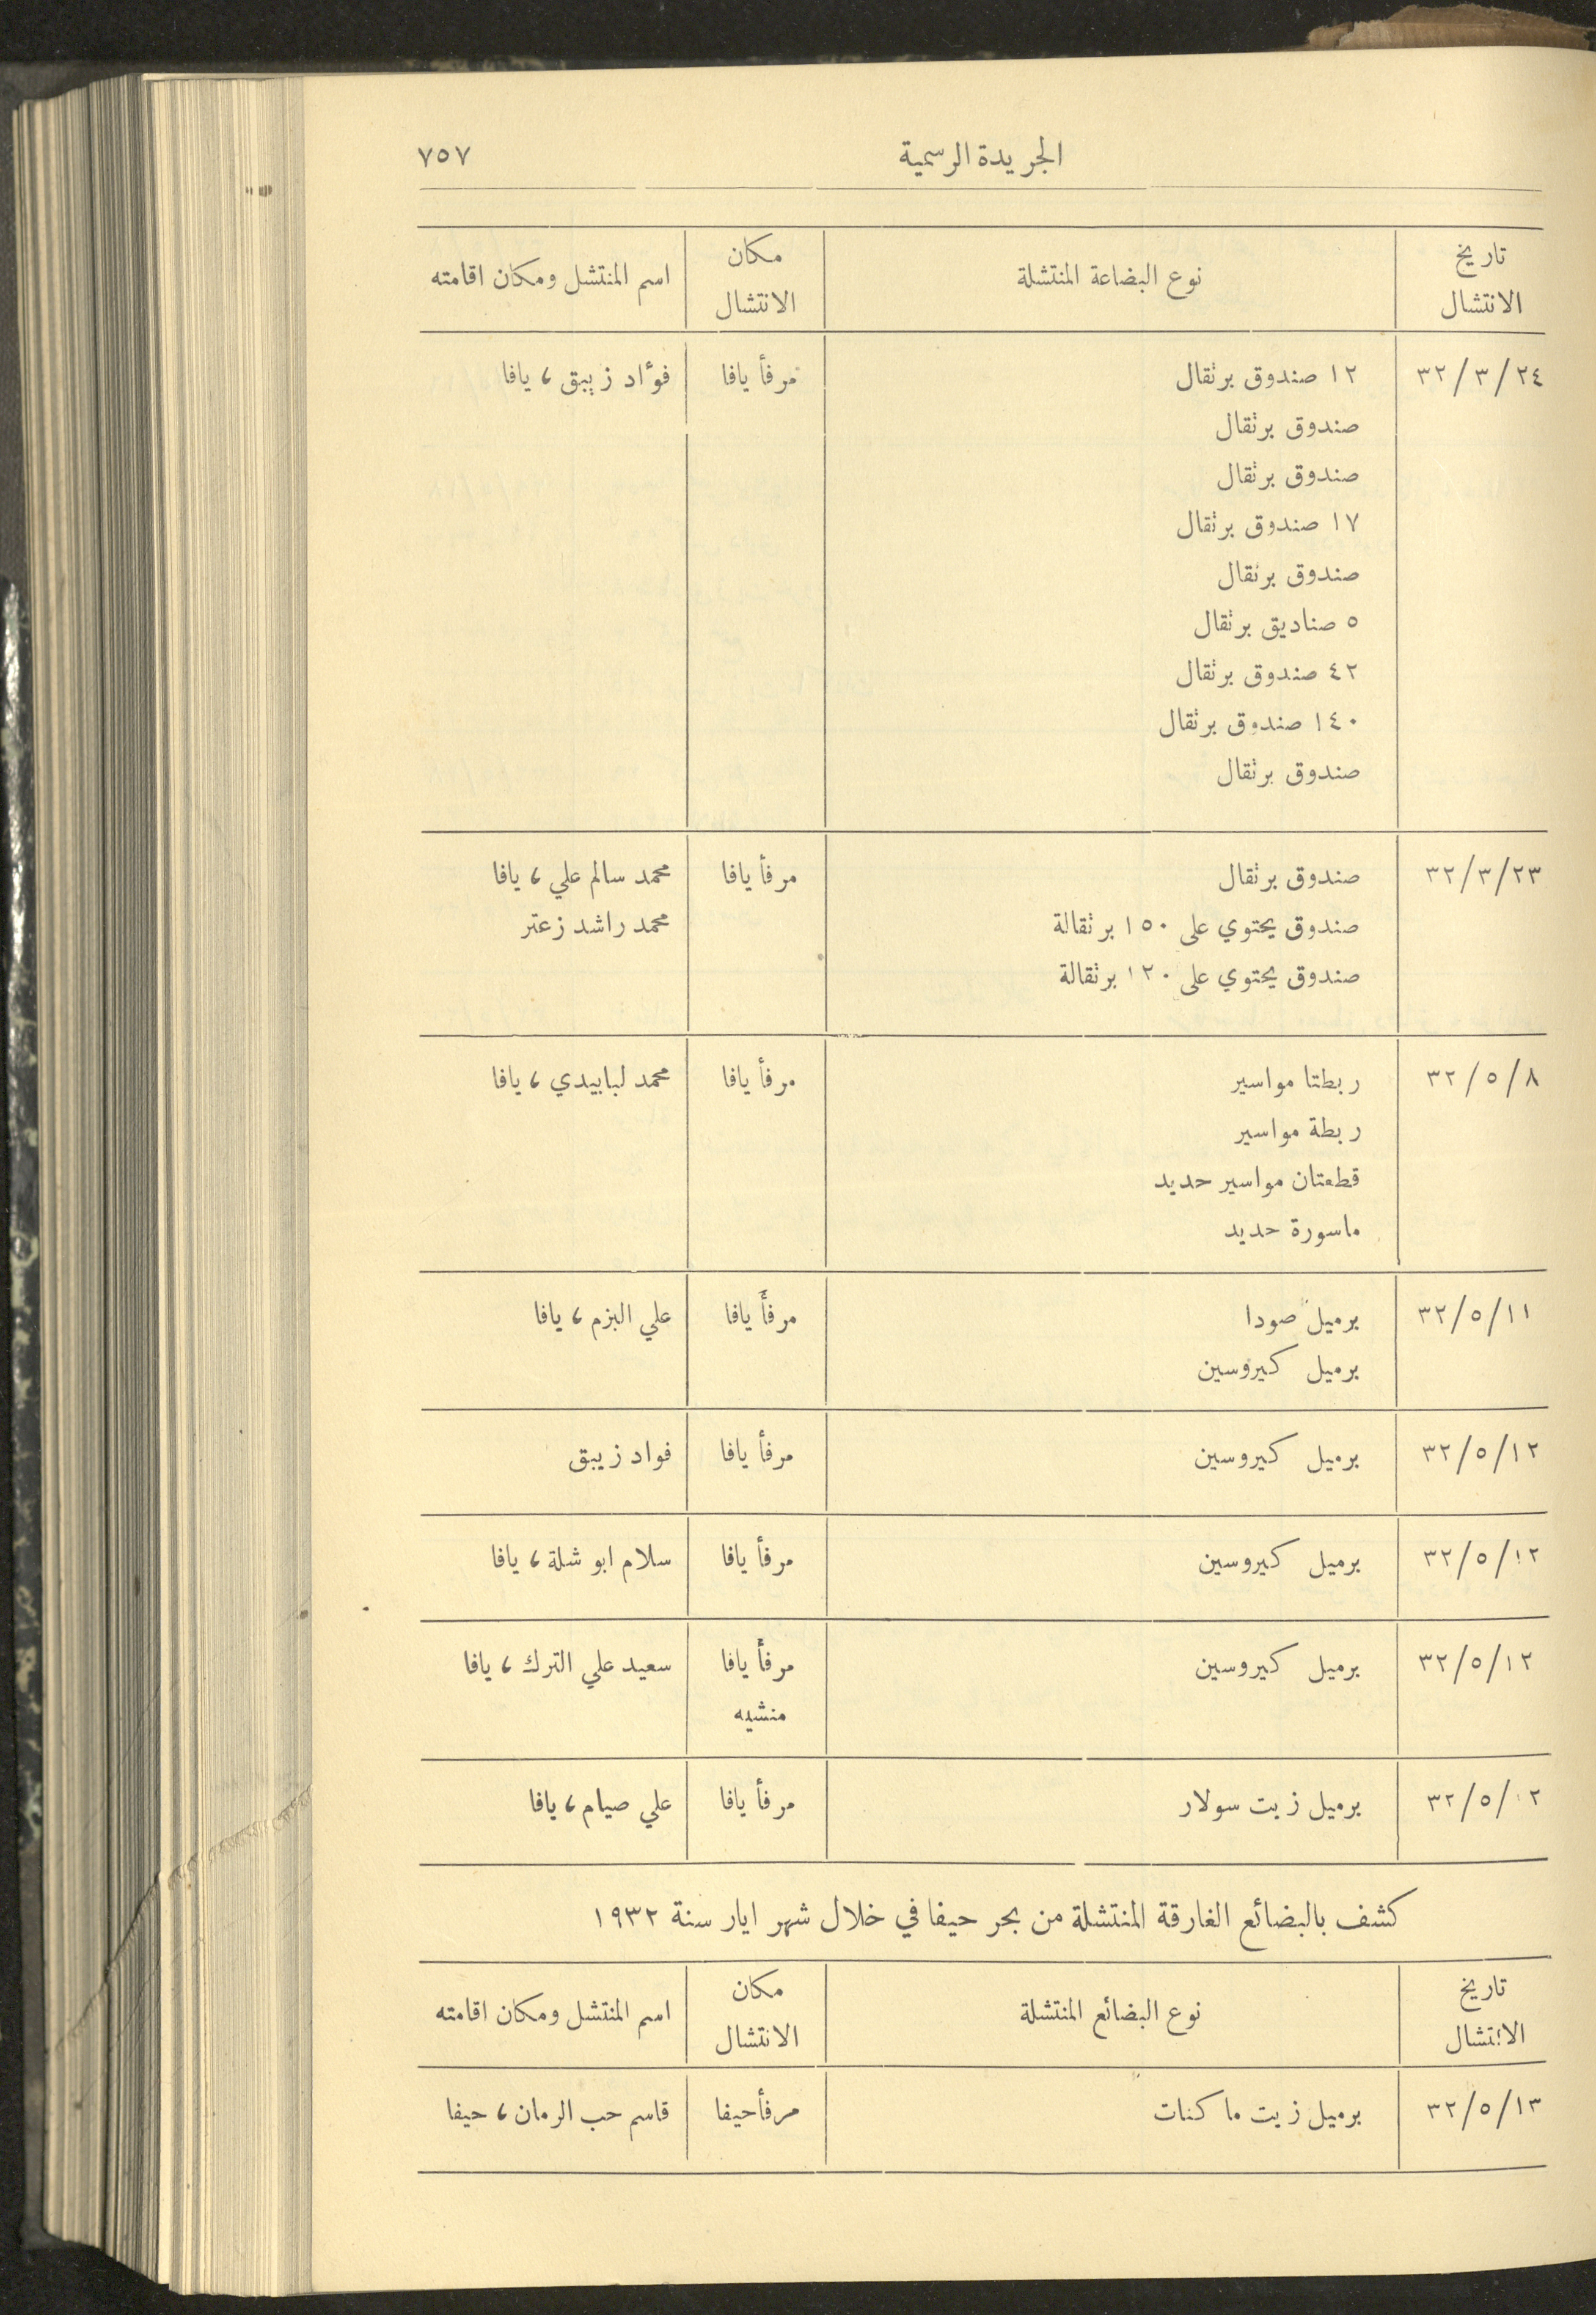 الجريدة الرسمية ٧٥٧
تاريخ الانتشال | نوع البضاعة المنتشلة | مكان الانتشال | اسم المنتشل ومكان اقامته
٣٢/٣/٢٤ | ١٢ صندوق برتقال | مرفأ يافا | فؤاد زيبق ، يافا
صندوق برتقال
صندوق برتقال
١٧ صندوق برتقال
صندوق برتقال
٥ صناديق برتقال
٤٢ صندوق برتقال
١٤٠ صندوق برتقال
صندوق برتقال
٣٢/٣/٢٣ | صندوق برتقال | مرفأ يافا | محمد سالم علي ، يافا
صندوق يحتوي على ١٥٠ برتقالة | محمد راشد زعتر
صندوق يحتوي على ١٢٠ برتقالة
٣٢/٥/٨ | ربطتا مواسير | مرفأ يافا | محمد لبابيدي ، يافا
ربطة مواسير
قطعتان مواسير حديد
ماسورة حديد
٣٢/٥/١١ | برميل صودا | مرفأ يافا | علي البزم ، يافا
برميل كيروسين
٣٢/٥/١٢ | برميل كيروسين | مرفأ يافا | فواد زيبق
٣٢/٥/١٢ | برميل كيروسين | مرفأ يافا | سلام ابو شلة ، يافا
٣٢/٥/١٢ | برميل كيروسين | مرفأ يافا | سعيد علي الترك ، يافا
منشيه
٣٢/٥/١٢ | برميل زيت سولار | مرفأ يافا | علي صيام ، يافا
كشف بالبضائع الغارقة المنتشلة من بحر حيفا في خلال شهر ايار سنة ١٩٣٢
تاريخ الانتشال | نوع البضائع المنتشلة | مكان الانتشال | اسم المنتشل ومكان اقامته
٣٢/٥/١٣ | برميل زيت ماكنات | مرفأ حيفا | قاسم حب الرمان ، حيفا